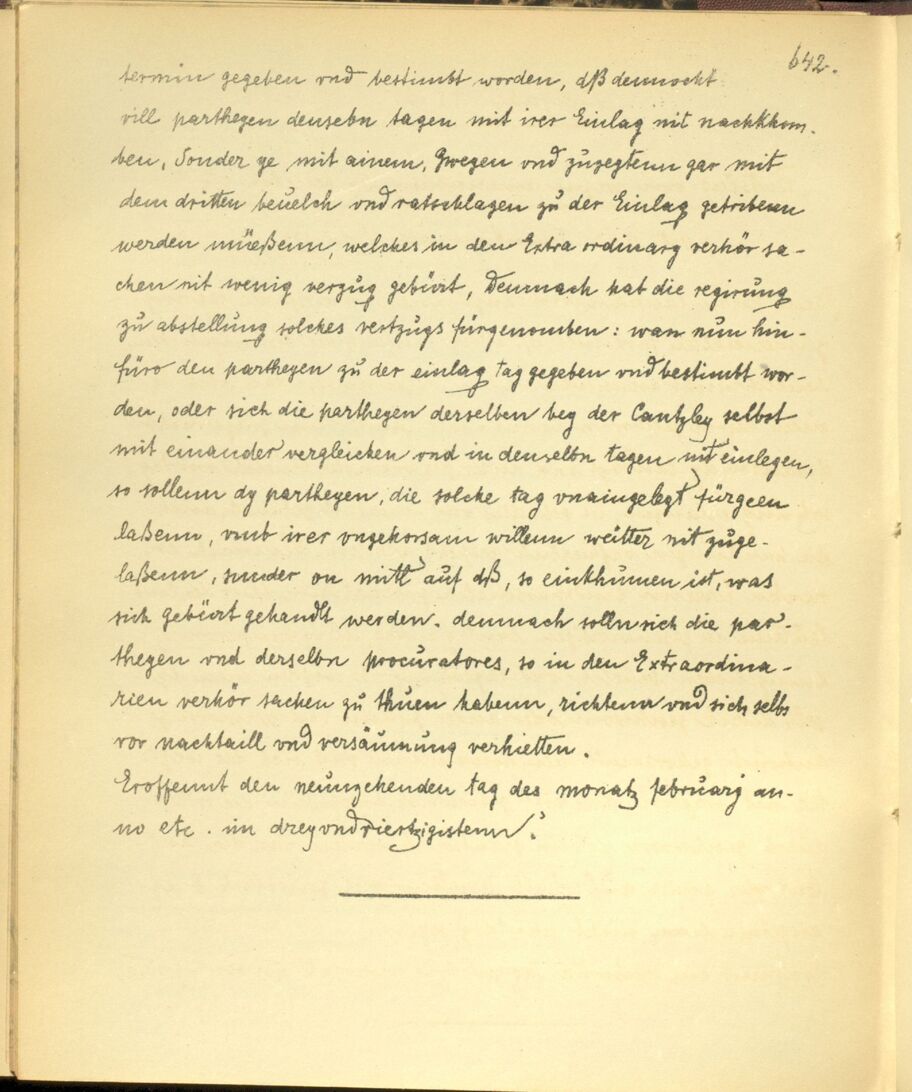 642.
termin gegeben vnd bestimbt worden, dß dennocht
vill partheyen denselbn tagen mit irer Einlag nit nachkhom-
ben, Sonder ye mit ainem, Zwegen vnd zuzegtenn gar mit
dem dritten beuelch vnd ratschlagen zu der Einlag getribenn
werden müeßenn, welches in den Extra ordinarg verhör sa-
chen nit wenig verzug gebürt, Demnach hat die regirung
zu abstellung solches vertzugs fürgenomben: wan nun hin-
füro den partheyen zu der einlag tag gegeben vnd bestimbt wor-
den, oder sich die partheyen derselben bey der Cantzley selbst
mit einander vergleichen vnd in denselbn tagen nit einlegen,
so sollenn dy partheyen, die solche tag vnaingelegt fürgeen
laßenn, vmb irer vngehorsam willenn weitter nit zuge-
laßenn, sunder on mitl auf dß, so einkhumen ist, was
sich gebürt gehandlt werden. demnach solln sich die par-
theyen vnd derselbn procuratores, so in den Extraordina-
rien verhör sachen zu thuen habenn, richtenn vnd sich selbs
vor nachtaill vnd versäumung verhietten.
Eroffennt den neunzehenden tag des monatz februarij an-
no etc. im drey vnd viertzigistenn.